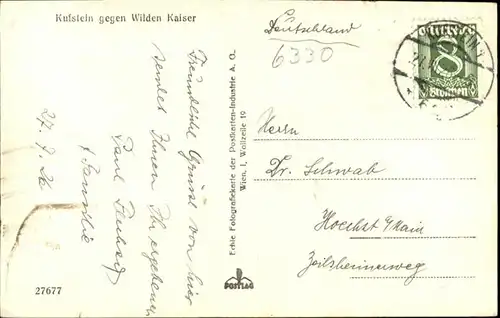 Kufstein gegen Wilden Kaiser
Deutschland
6330
Österreich
8
Groschen
27. 9. 26
Freundliche Grüsse von hier
sendet Ihnen Ihr ergebener
Paul
& Familie
Echte Fotografiekarte der Postkarten-Industrie A. G.,
Wien, I. Wollzeile 19
Herrn
Dr. Schwab
Hoechst a/Main
Zeilsheimerweg
POSTIAG
27677